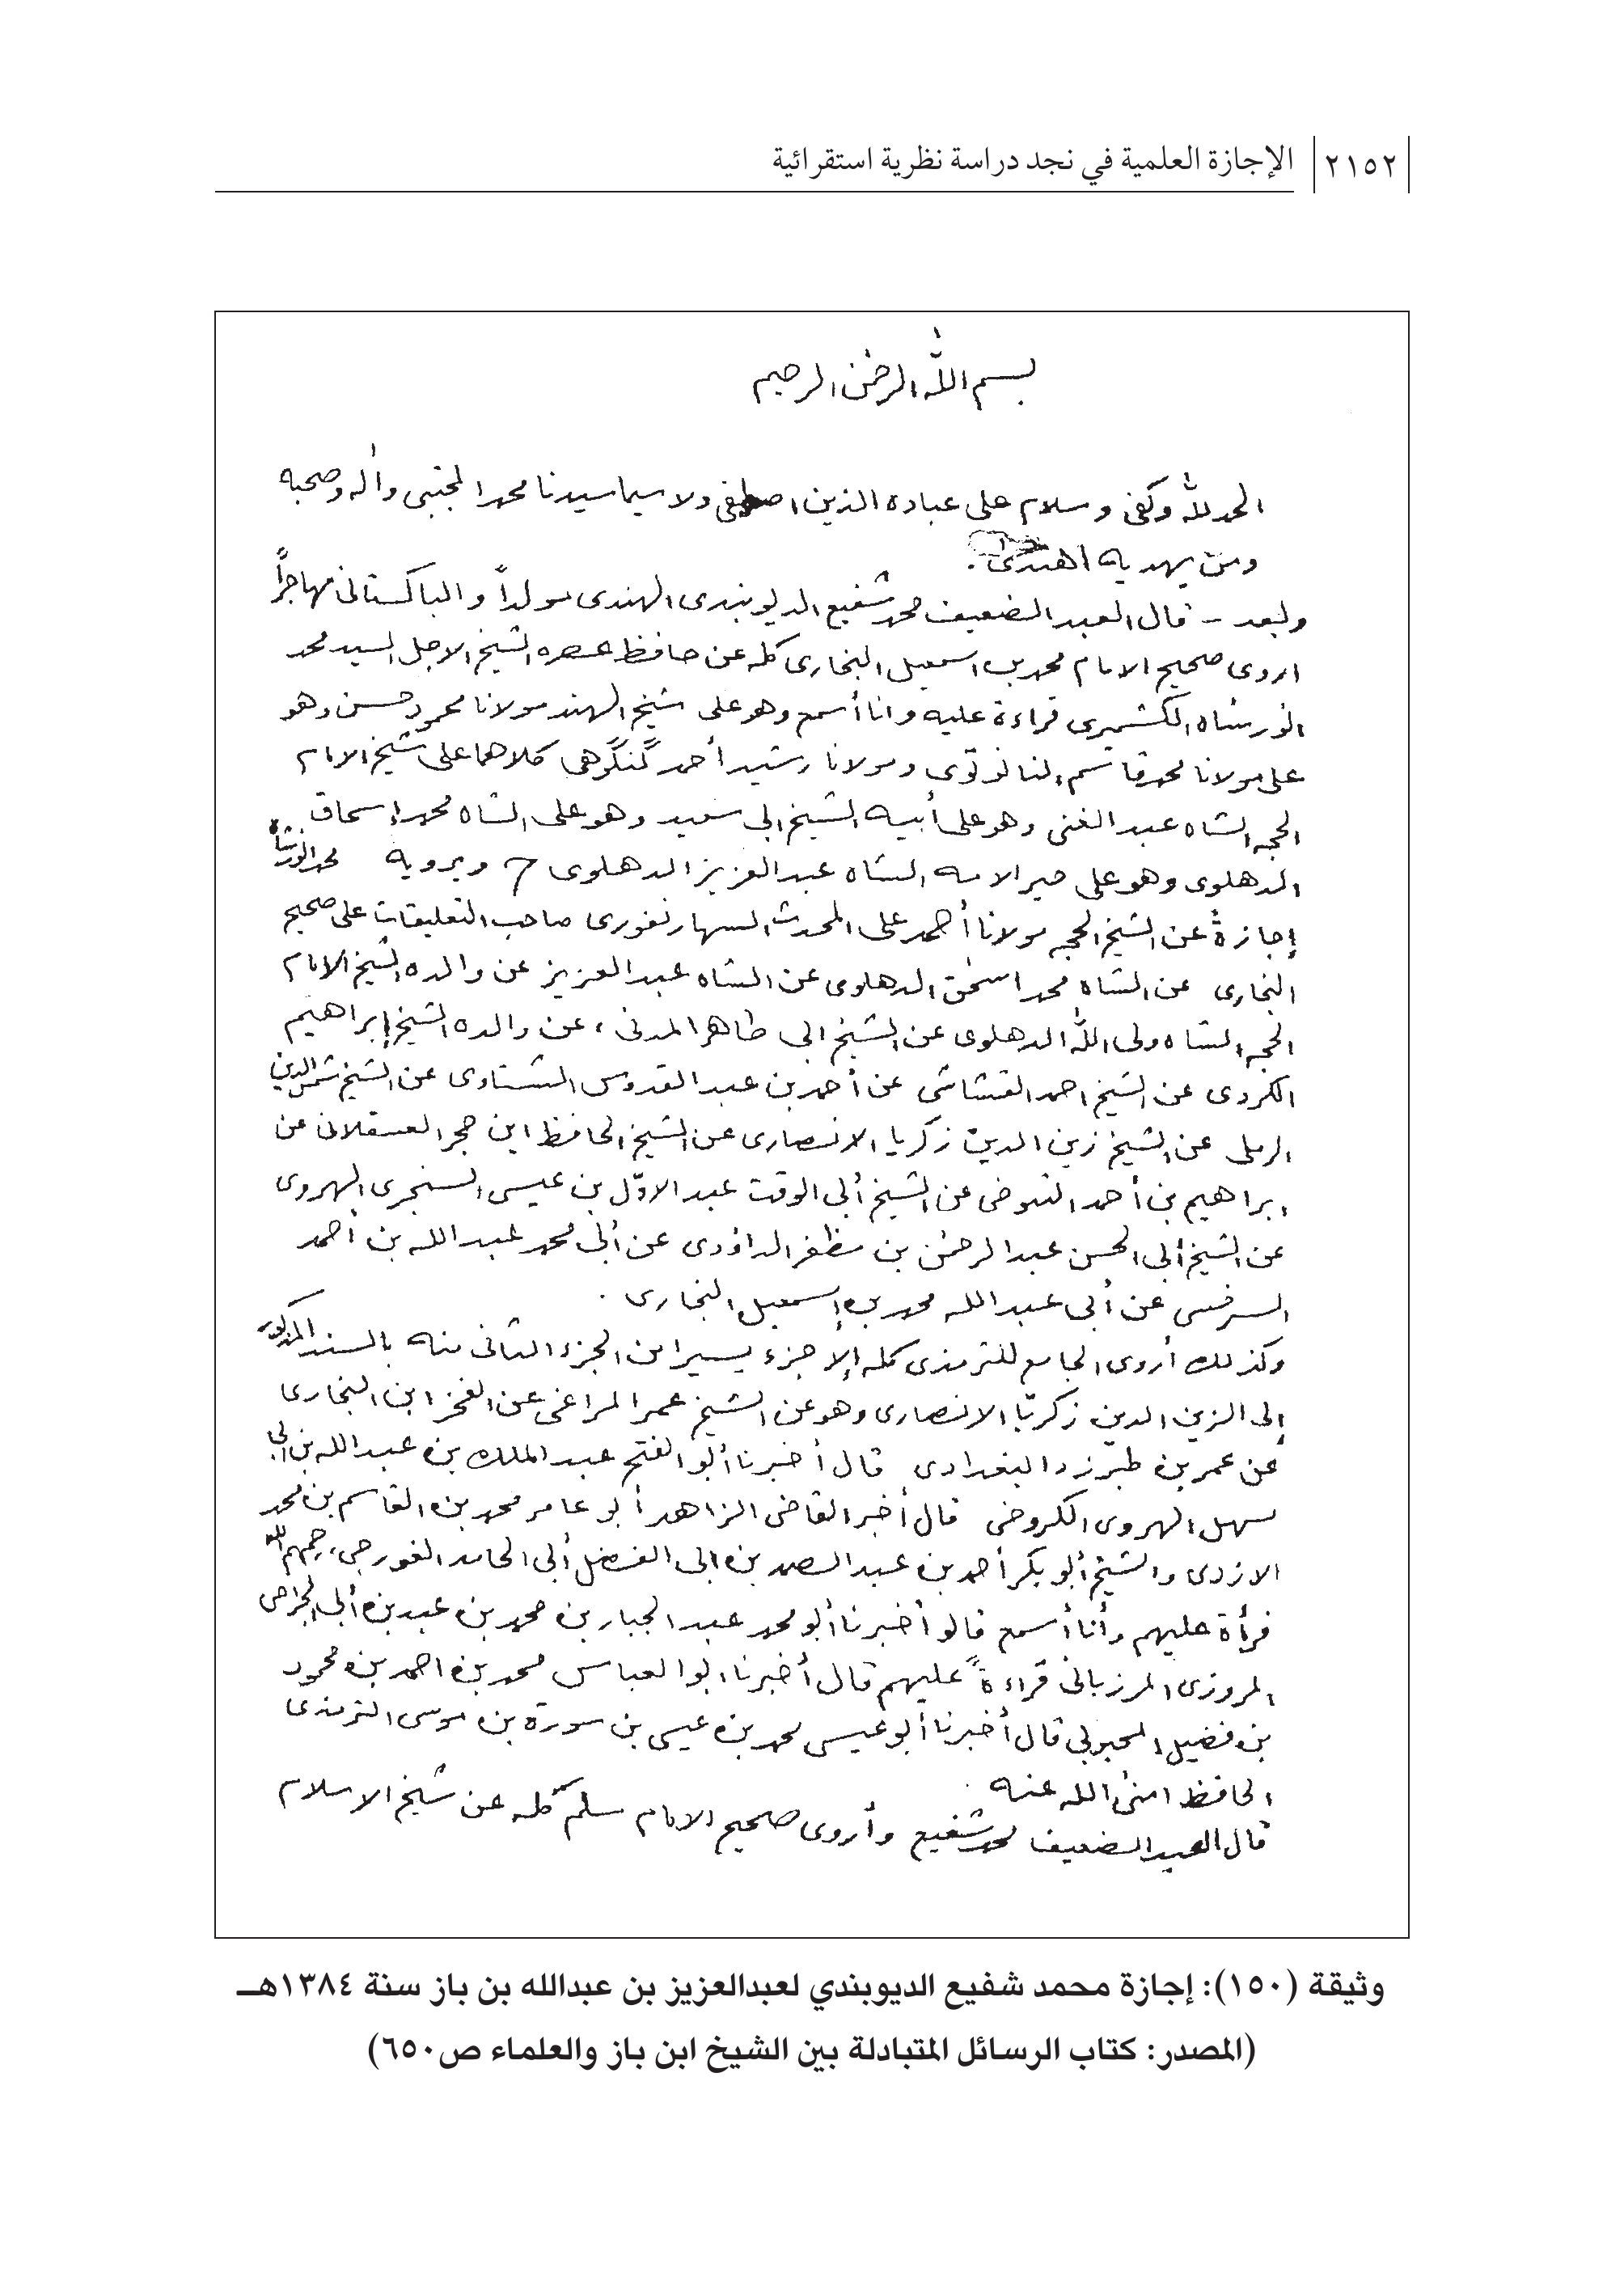 ٢١٥٢ الإجازة العلمية في نجد دراسة نظرية استقرائية
بسم الله الرحمٰن الرحيم
الحمد لله وكفى وسلام على عباده الذين اصطفى ولا سيما سيدنا محمد المجتبى وآله وصحبه
ومن يهديه اهتدى.
وبعد - قال العبد الضعيف محمد شفيع الديوبندى الهندى مولداً والباكستانى مهاجراً
اروى صحيح الامام محمد بن اسمعيل البخارى كله عن حافظ عصره الشيخ الاجل السيد محمد
انور شاه الكشميرى قراءة عليه وانا أسمع وهو على شيخ الهند مولانا محمود حسن وهو
على مولانا محمد قاسم النانوتوى ومولانا رشيد أحمد گنگوهى كلاهما على شيخ الامام
الحجه الشاه عبد الغنى وهو على أبيه الشيخ ابى سعيد وهو على الشاه محمد إسحاق
الدهلوى وهو على حبر الامه الشاه عبد العزيز الدهلوى ح ويرويه محمد انور شاه
إجازةً عن الشيخ الحجه مولانا أحمد على المحدث السهارنفورى صاحب التعليقات على صحيح
البخارى عن الشاه محمد اسحٰق الدهلوى عن الشاه عبد العزيز عن والده الشيخ الامام
الحجه الشاه ولى الله الدهلوى عن الشيخ ابى طاهر المدنى، عن والده الشيخ إبراهيم
الكردى عن الشيخ احمد القشاشى عن أحمد بن عبد القدوس الشناوى عن الشيخ شمس الدين
الرملى عن الشيخ زين الدين زكريا الانصارى عن الشيخ الحافظ ابن حجر العسقلانى عن
ابراهيم بن أحمد التنوخى عن الشيخ أبى الوقت عبد الاوّل بن عيسى السنجرى الهروى
عن الشيخ أبى الحسن عبد الرحمٰن بن مظفر الداؤدى عن أبى محمد عبد الله بن أحمد
السرخسى عن أبى عبد الله محمد بن إسمعيل البخارى.
وكذلك أروى الجامع للترمذى كله إلا جزء يسيرا من الجزء الثانى منه بالسند المذكور
إلى الزين الدين زكريّا الانصارى وهو عن الشيخ عمر المراغى عن الفخر ابن البخارى
عن عمر بن طبرزد البغدادى قال أخبرنا أبو الفتح عبد الملك بن عبد الله بن ابى
سهل الهروى الكروخى قال أخبر القاضى الزاهد أبو عامر محمد بن القاسم بن محمد
الازدى والشيخ أبو بكر أحمد بن عبد الصمد بن ابى الفضل أبى الحامد الغورجى، رحمهم الله
قرأة عليهم وأنا أسمع قالو أخبرنا أبو محمد عبد الجبار بن محمد بن عبد بن أبى الجراحى
المروزى المرزبانى قراءةً عليهم قال أخبرنا ابو العباس محمد بن احمد بن محمود
بن فضيل المحبوبى قال أخبرنا أبو عيسى محمد بن عيسى بن سورة بن موسى الترمذى
الحافظ الله عنه.
قال العبد الضعيف محمد شفيع وأروى صحيح الامام مسلم كله عن شيخ الاسلام
وثيقة (١٥٠): إجازة محمد شفيع الديوبندي لعبدالعزيز بن عبدالله بن باز سنة ١٣٨٤هـ
(المصدر: كتاب الرسائل المتبادلة بين الشيخ ابن باز والعلماء ص٦٥٠)